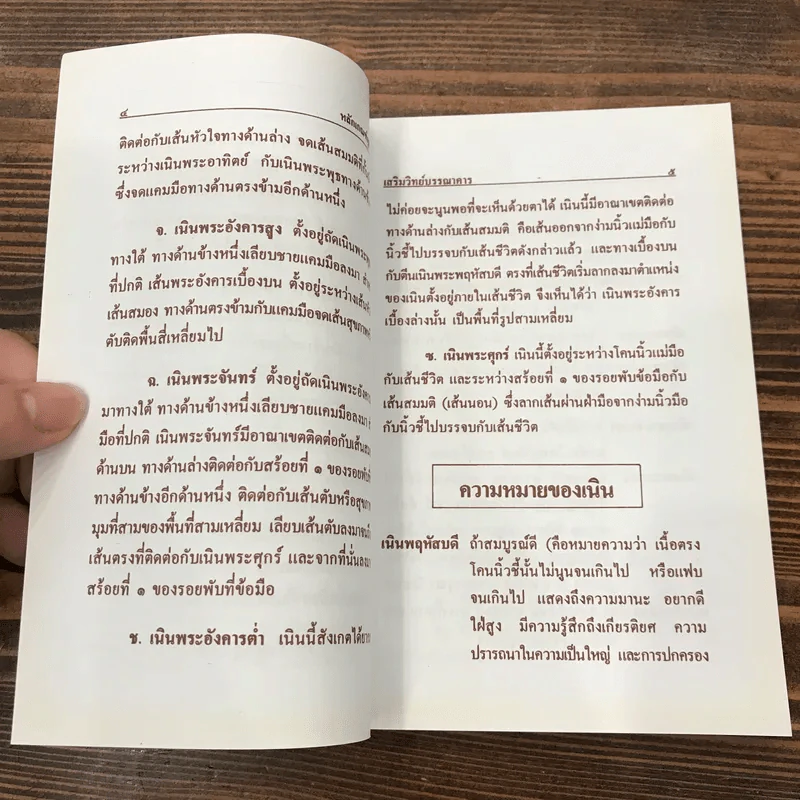 ๔
ติดต่อกับเส้นหัวใจทางด้านล่าง จดเส้นสมมติที่
ระหว่างเนินพระอาทิตย์ กับเนินพระพุธทางด้าน
ซึ่งจดแคมมือทางด้านตรงข้ามอีกด้านหนึ่ง
จ. เนินพระอังคารสูง ตั้งอยู่ถัดเนินพระ
ทางใต้ ทางด้านข้างหนึ่งเลียบชายแคมมือลงมา
ที่ปกติ เส้นพระอังคารเบื้องบน ตั้งอยู่ระหว่างเส้น
เส้นสมอง ทางด้านตรงข้ามกับแคมมือจดเส้นสุขภาพ
ตับติดพื้นสี่เหลี่ยมไป
ฉ. เนินพระจันทร์ ตั้งอยู่ถัดเนินพระอังคาร
มาทางใต้ ทางด้านข้างหนึ่งเลียบชายแคมมือลงมา
มือที่ปกติ เนินพระจันทร์มีอาณาเขตติดต่อกับเส้น
ด้านบน ทางด้านล่างติดต่อกับสร้อยที่ ๑ ของรอยพับ
ทางด้านข้างอีกด้านหนึ่ง ติดต่อกับเส้นตับหรือสุขภาพ
มุมที่สามของพื้นที่สามเหลี่ยม เลียบเส้นตับลงมาจน
เส้นตรงที่ติดต่อกับเนินพระศุกร์ และจากที่นั่นลงมา
สร้อยที่ ๑ ของรอยพับที่ข้อมือ
ช. เนินพระอังคารต่ำ เนินนี้สังเกตได้ยาก
เสริมวิทย์บรรณาคาร ๕
ไม่ค่อยจะนูนพอที่จะเห็นด้วยตาได้ เนินนี้มีอาณาเขตติดต่อ
ทางด้านล่างกับเส้นสมมติ คือเส้นออกจากง่ามนิ้วแม่มือกับ
นิ้วชี้ไปบรรจบกับเส้นชีวิตดังกล่าวแล้ว และทางเบื้องบน
กับตีนเนินพระพฤหัสบดี ตรงที่เส้นชีวิตเริ่มลากลงมาตำแหน่ง
ของเนินตั้งอยู่ภายในเส้นชีวิต จึงเห็นได้ว่า เนินพระอังคาร
เบื้องล่างนั้น เป็นพื้นที่รูปสามเหลี่ยม
ซ. เนินพระศุกร์ เนินนี้ตั้งอยู่ระหว่างโคนนิ้วแม่มือ
กับเส้นชีวิต และระหว่างสร้อยที่ ๑ ของรอยพับข้อมือกับ
เส้นสมมติ (เส้นนอน) ซึ่งลากเส้นผ่านฝ่ามือจากง่ามนิ้วมือ
กับนิ้วชี้ไปบรรจบกับเส้นชีวิต
ความหมายของเนิน
เนินพฤหัสบดี ถ้าสมบูรณ์ดี (คือหมายความว่า เนื้อตรง
โคนนิ้วชี้นั้นไม่นูนจนเกินไป หรือแฟบ
จนเกินไป แสดงถึงความมานะ อยากดี
ใฝ่สูง มีความรู้สึกถึงเกียรติยศ ความ
ปรารถนาในความเป็นใหญ่ และการปกครอง